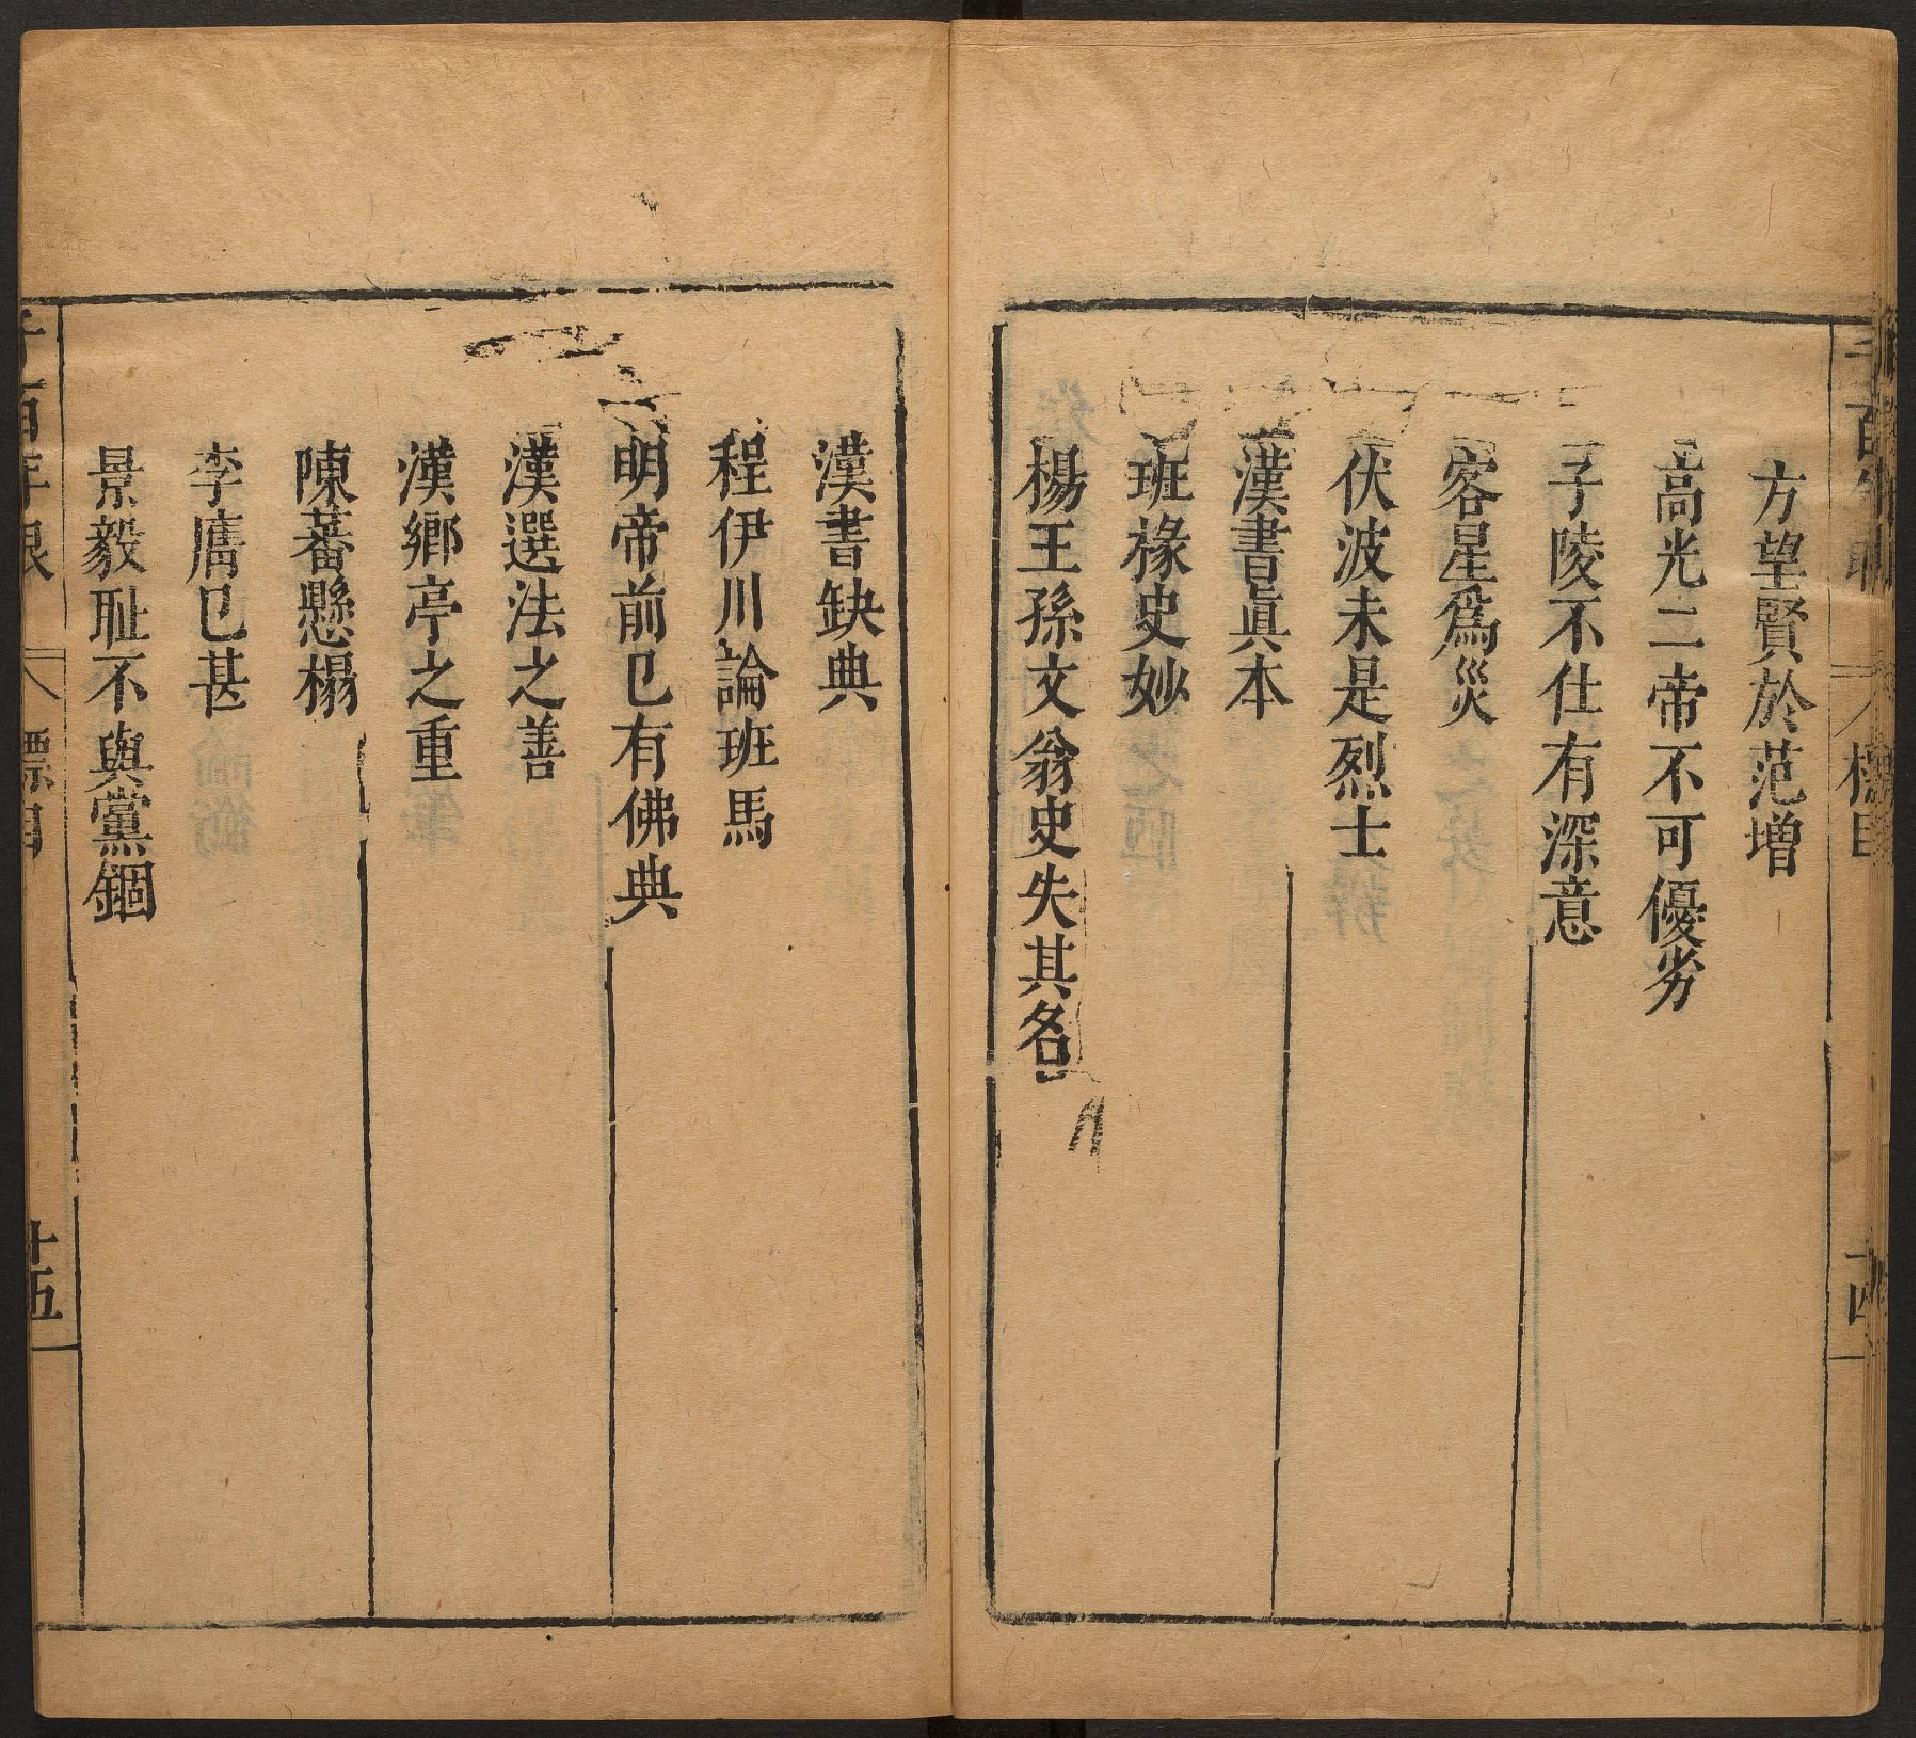 方望賢於范增
高光二帝不可優劣
子陵不仕有深意
客星爲災
伏波未是烈士
漢書眞本
班椽史妙
楊王孫文翁史失其名
漢書缺典
程伊川論班馬
明帝前已有佛典
漢選法之善
漢鄉亭之重
陳蕃懸榻
李膺已甚
景毅耻不與黨錮
標目
十五